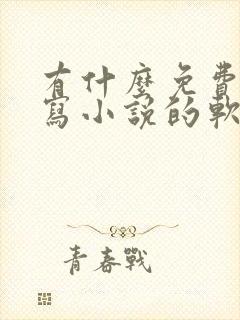 有什麼免費
寫小說的軟
青春戰